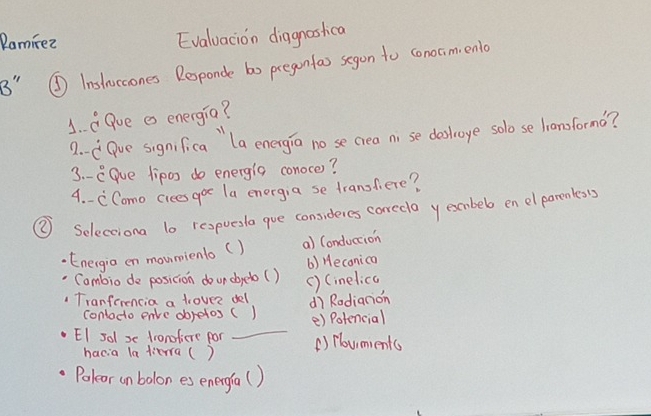 Ramírez
Evaluación diagnostica
B"
① Instrucciones Responde las preguntas segun tu conocimiento
1.-¿Que es energía?
2.-¿Que significa "la energía no se crea ni se destruye solo se transforma"?
3.-¿Que tipos de energía conoces?
4.-¿Como crees que la energia se transfiere?
② Selecciona la respuesta que consideres correcta y escribela en el parentesis
• Energia en movimiento ( )
• Cambio de posición de un objeto ( )
• Tranferencia a travez del
contacto entre objetos ( )
• El sol se transfiere por ____
hacia la tierra ( )
• Patear un balon es energía ( )
a) Conducción
b) Mecanica
c) Cinetica
d) Radiación
e) Potencial
f) Movimiento